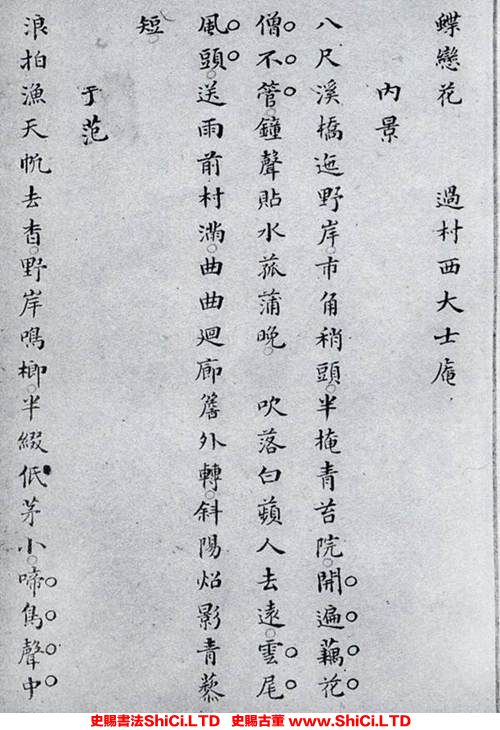 蝶戀花　過村西大士庵
內景
八尺溪橋迤野岸市角稍頭半掩青苔院開遍藕花
僧不管鐘聲貼水菰蒲晚　吹落白蘋人去遠雲尾
風頭送雨前村滿曲曲迴廊簷外轉斜陽炤影青藜
短
于范
浪拍漁天帆去杳野岸鳴榔半綴低茅小啼鳥聲中
史賜書法ShiCi.LTD　史賜古董 www.ShiCi.LTD